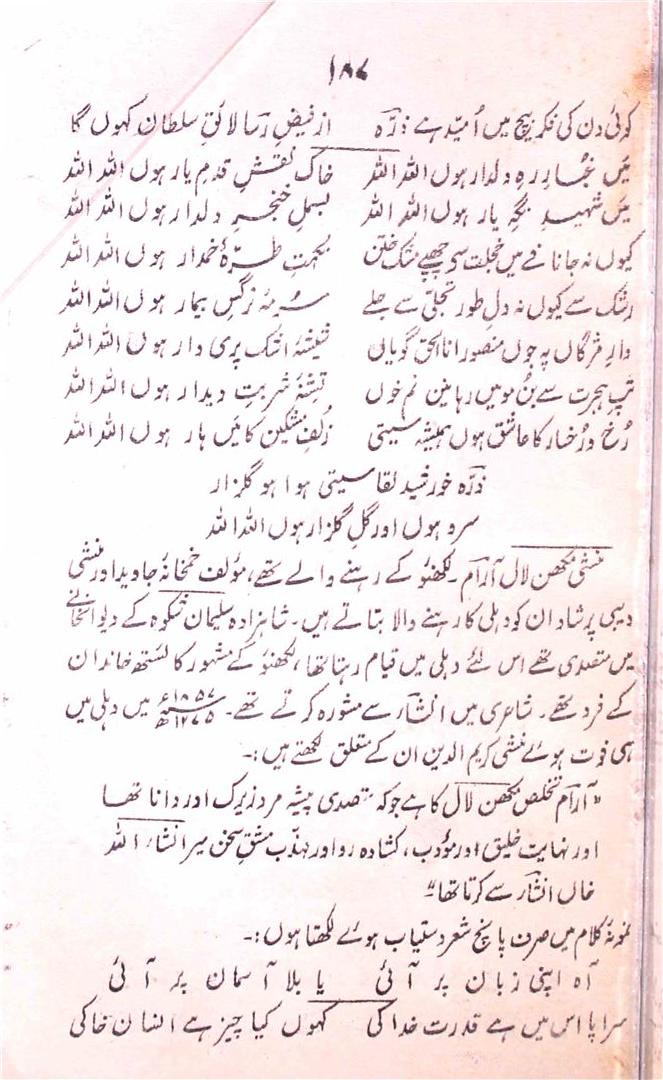 ۱۸۷
کوئی دن کی فکر ہیچ میں اُمید ہے : ذرّہ از فیضِ رسا لائقِ سلطان کہوں گا
میں غبارِ رہِ دلدار ہوں اللہ اللہ خاک نقشِ قدمِ یار ہوں اللہ اللہ
میں شہیدِ نگہِ یار ہوں اللہ اللہ بسملِ خنجرِ دلدار ہوں اللہ اللہ
کیوں نہ جا نافے میں خجلت سی چھپے مشک ختن نکہتِ طرّۂ خمدار ہوں اللہ اللہ
رشک سے کیوں نہ دلِ طور تجلی سے جلے سرمۂ نرگسِ بیمار ہوں اللہ اللہ
دارِ مژگاں پہ جوں منصور اناالحق گویاں شیشۂ اشک پری دار ہوں اللہ اللہ
تپِ ہجرت سے بُن مو میں رہا نین نم خوں تشنۂ شربتِ دیدار ہوں اللہ اللہ
رُخ و رُخسار کا عاشق ہوں ہمیشہ سیتی زُلفِ مشکین کا میں ہار ہوں اللہ اللہ
ذرّہ خورشید لقا سیتی ہوا ہو گلزار
سرو ہوں اور گلِ گلزار ہوں اللہ اللہ
منشی مکھن لال آرام ۔ لکھنؤ کے رہنے والے تھے، مؤلف خمخانۂ جاوید اور منشی
دیبی پرشاد ان کو دہلی کا رہنے والا بتاتے ہیں۔ شاہزادہ سلیمان شکوہ کے دیوانخانے
میں متصدی تھے اس لئے دہلی میں قیام رہتا تھا، لکھنؤ کے مشہور کائستھ خاندان
کے فرد تھے۔ شاعری میں انشاؔر سے مشورہ کرتے تھے۔ ۱۸۵۷ء ۱۲۷۵ھ میں دہلی میں
ہی فوت ہوئے منشی کریم الدین ان کے متعلق لکھتے ہیں :-
"آرام تخلص مکھن لال کا ہے جو کہ متصدی پیشہ مرد زیرک اور دانا تھا
اور نہایت خلیق اور مؤدب، کشادہ رو اور مہذب مشقِ سخن میر انشاء اللہ
خاں انشاؔر سے کرتا تھا"
نمونۂ کلام میں صرف پانچ شعر دستیاب ہوئے لکھتا ہوں :-
آہ اپنی زبان پر آئی یا بلا آسمان پر آئی
سراپا اس میں ہے قدرت خدا کی کہوں کیا چیز ہے انسان خاکی